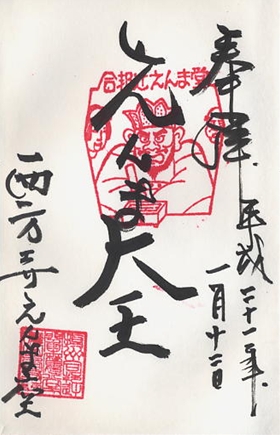 奉拝
平成二十一年
一月十二日
合邦辻えんま堂
えんま大王
西方寺えんま堂